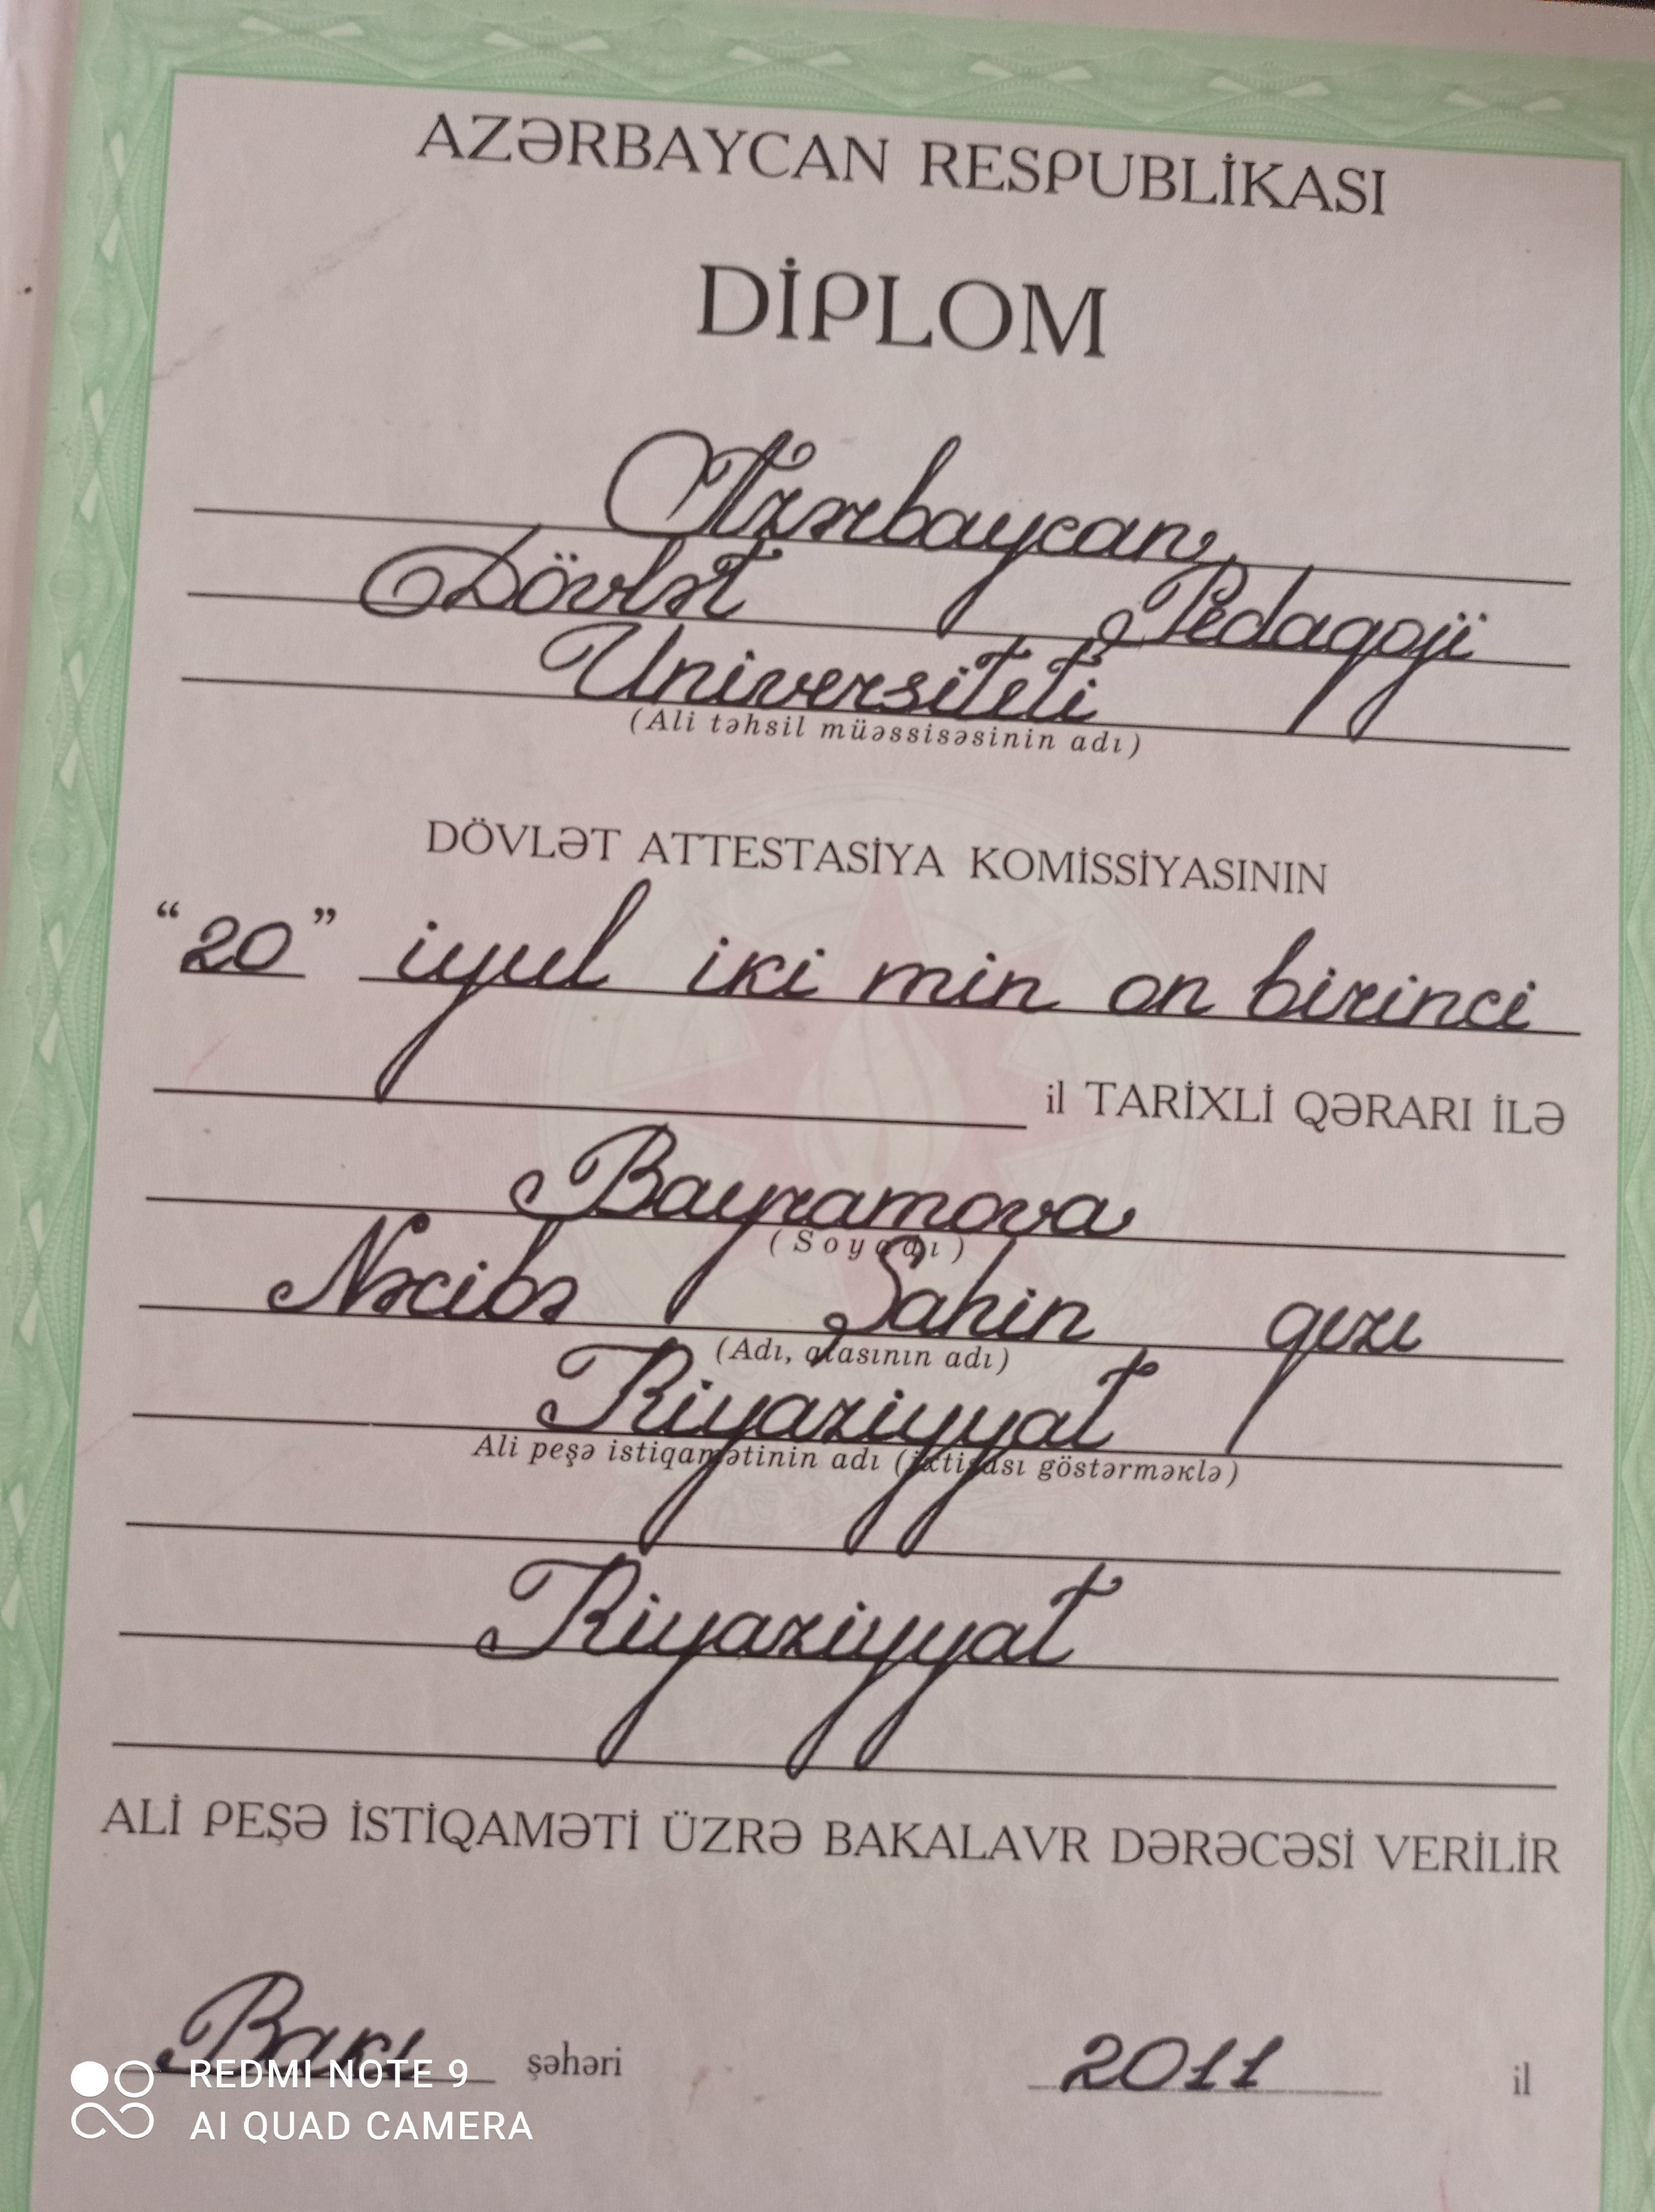 AZƏRBAYCAN RESPUBLİKASI
DİPLOM
Azərbaycan
Dövlət Pedaqoji
Universiteti
(Ali təhsil müəssisəsinin adı)
DÖVLƏT ATTESTASİYA KOMİSSİYASININ
“20” iyul iki min on birinci
il TARİXLİ QƏRARI İLƏ
Bayramova
(Soyadı)
Nəcibə Şahin qızı
(Adı, atasının adı)
Riyaziyyat
Ali peşə istiqamətinin adı (ixtisası göstərməklə)
Riyaziyyat
ALİ PEŞƏ İSTİQAMƏTİ ÜZRƏ BAKALAVR DƏRƏCƏSİ VERİLİR
Bakı şəhəri 2011 il
REDMI NOTE 9
AI QUAD CAMERA